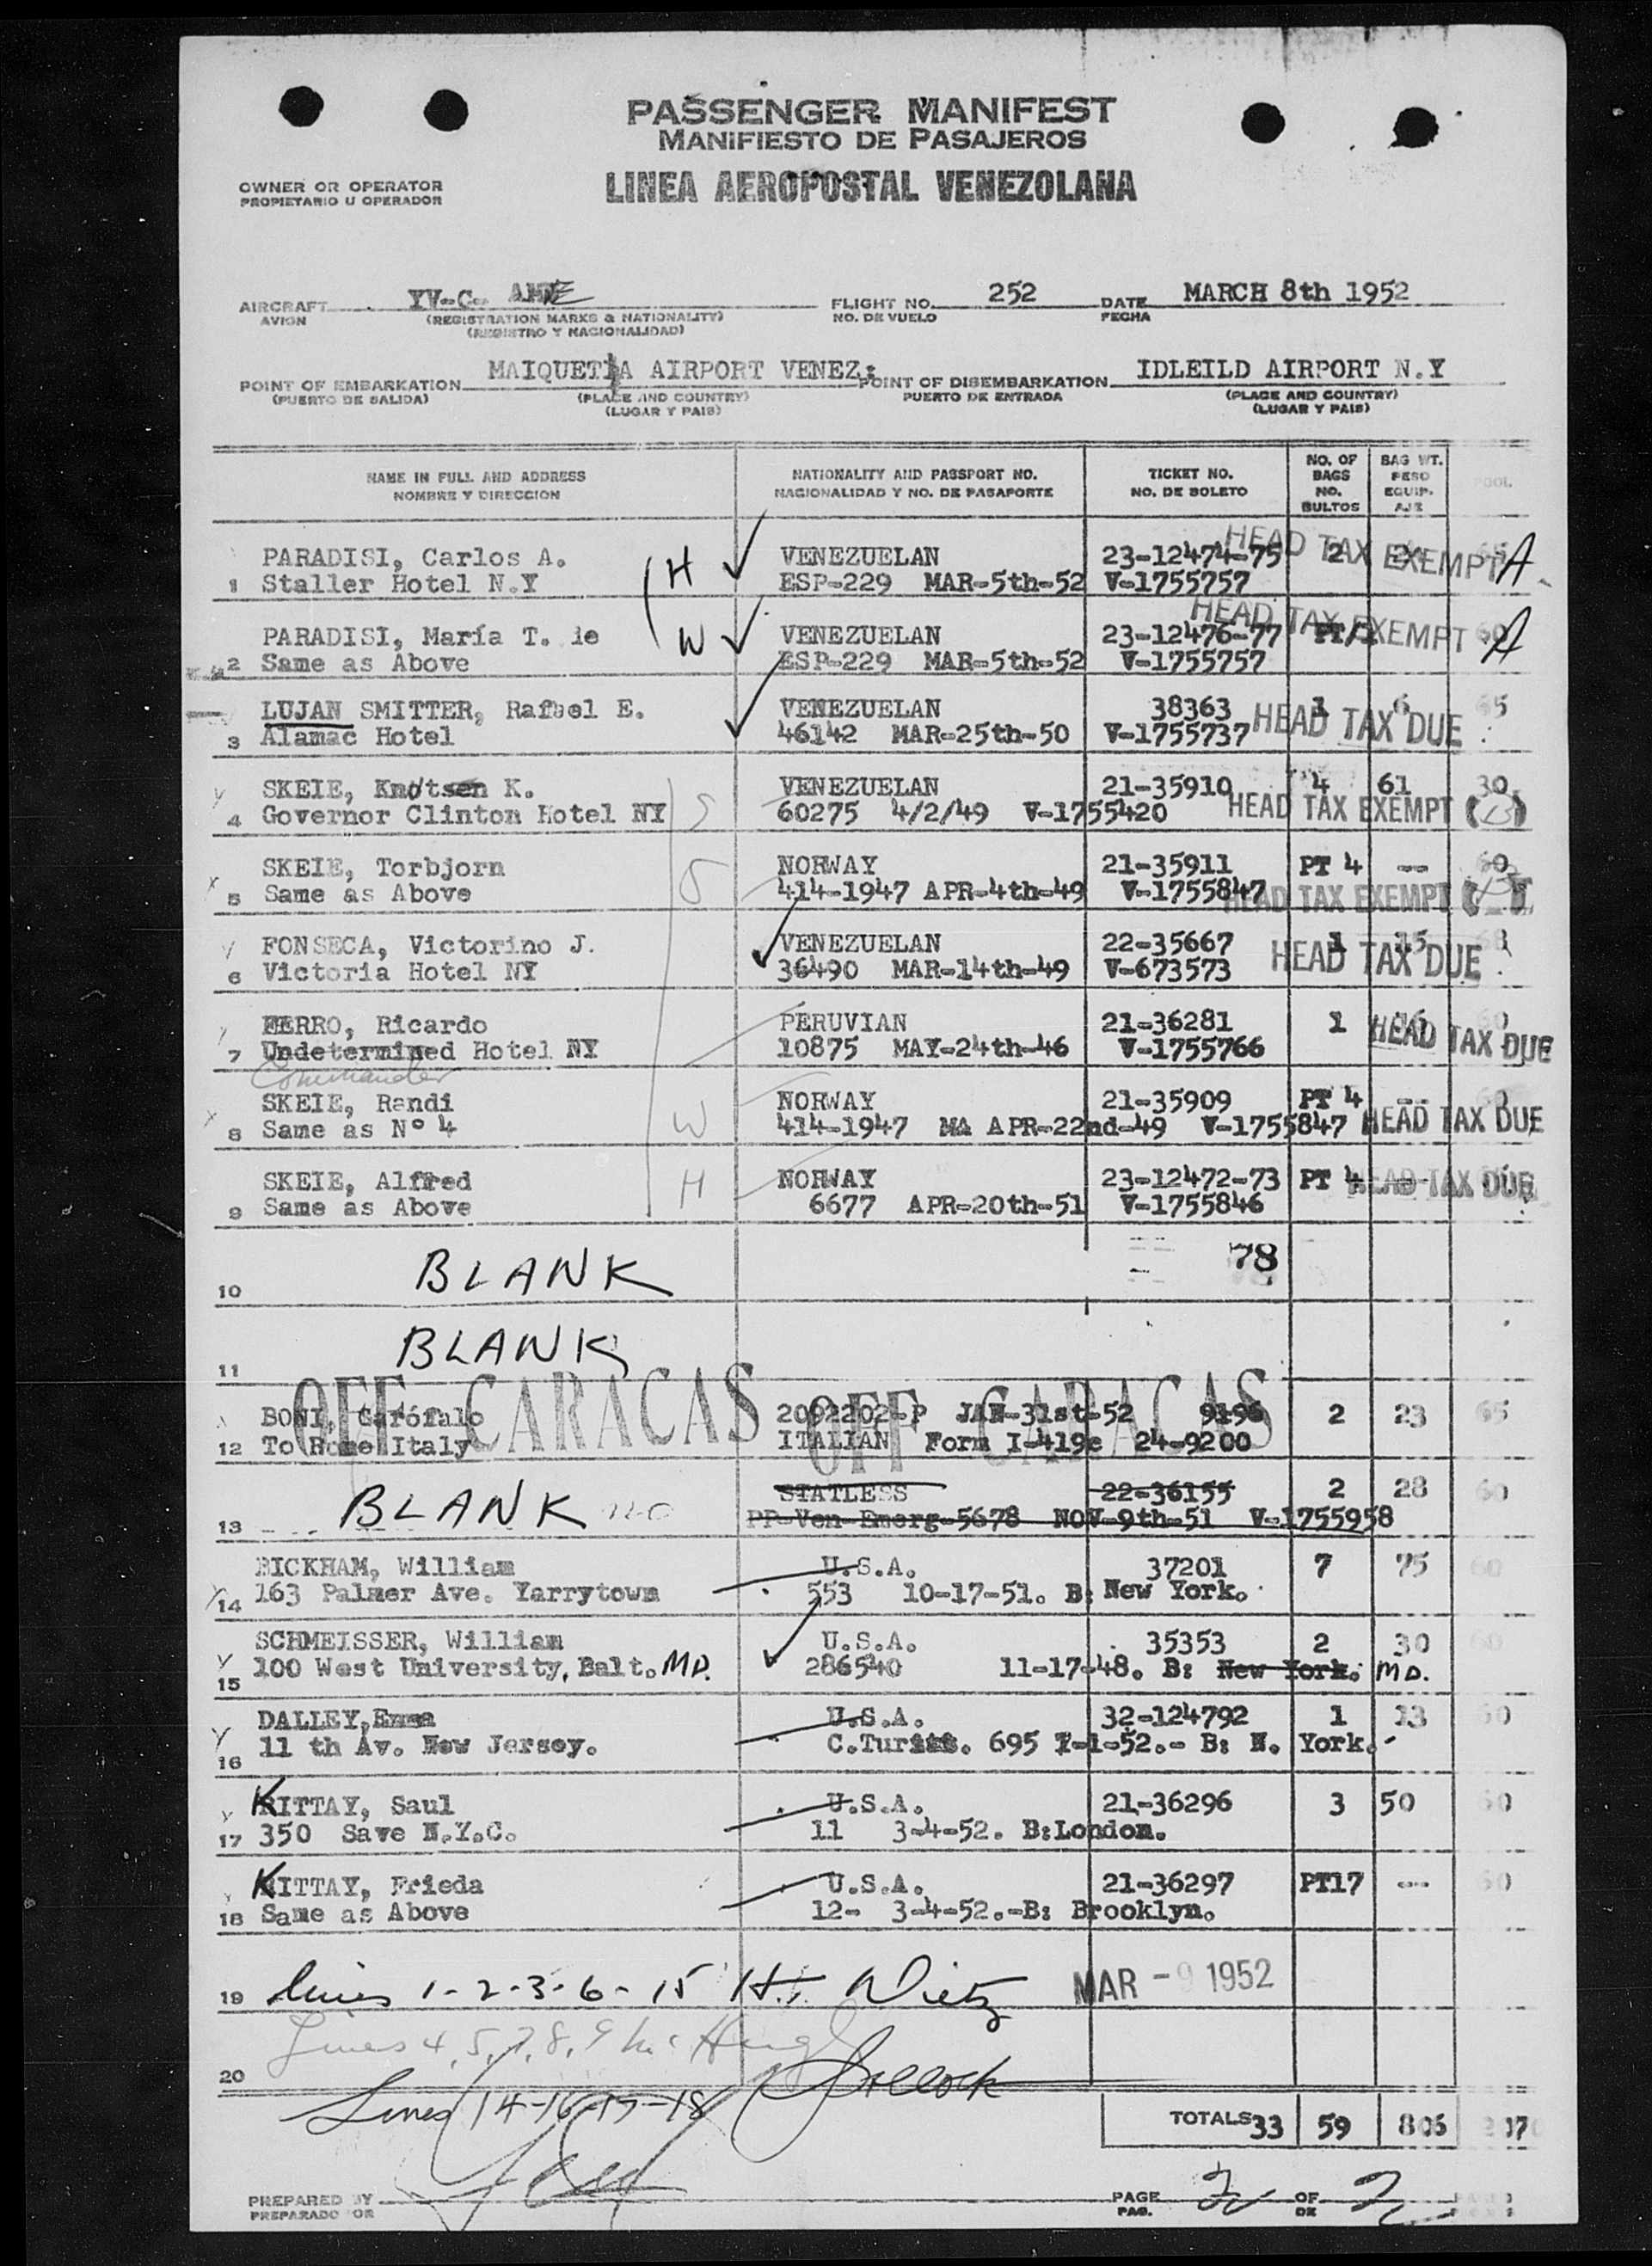 PASSENGER MANIFEST
MANIFIESTO DE PASAJEROS
OWNER OR OPERATOR
PROPIETARIO U OPERADOR
LINEA AEROPOSTAL VENEZOLANA
AIRCRAFT YV-C- FLIGHT NO. 252 DATE MARCH 8th 1952
AVION (REGISTRATION MARKS & NATIONALITY) NO. DE VUELO FECHA
(REGISTRO Y NACIONALIDAD)
POINT OF EMBARKATION MAIQUETIA AIRPORT VENEZ: POINT OF DISEMBARKATION IDLEILD AIRPORT N.Y
(PUERTO DE SALIDA) (PLACE AND COUNTRY) PUERTO DE ENTRADA (PLACE AND COUNTRY)
(LUGAR Y PAIS) (LUGAR Y PAIS)
NAME IN FULL AND ADDRESS NATIONALITY AND PASSPORT NO. TICKET NO. NO. OF BAGS BAG WT.
NOMBRE Y DIRECCION NACIONALIDAD Y NO. DE PASAPORTE NO. DE BOLETO NO. BULTOS PESO EQUIP. AJE
PARADISI, Carlos A. H VENEZUELAN 23-12474-75 2 HEAD TAX EXEMPT A
1 Staller Hotel N.Y ESP-229 MAR-5th-52 V-1755757
PARADISI, María T. de W VENEZUELAN 23-12476-77 HEAD TAX EXEMPT 60 A
2 Same as Above ESP-229 MAR-5th-52 V-1755757
LUJAN SMITTER, Rafael E. VENEZUELAN 38363 1 6 65
3 Alamac Hotel 46142 MAR-25th-50 V-1755737 HEAD TAX DUE
SKEIE, K. VENEZUELAN 21-35910 4 61 30
4 Governor Clinton Hotel NY S 60275 4/2/49 V-1755420 HEAD TAX EXEMPT (B)
SKEIE, Torbjorn S NORWAY 21-35911 PT 4 -- 60
5 Same as Above 414-1947 APR-4th-49 V-1755847 HEAD TAX EXEMPT
FONSECA, Victorino J. VENEZUELAN 22-35667 1 15 68
6 Victoria Hotel NY 36490 MAR-14th-49 V-673573 HEAD TAX DUE
FERRO, Ricardo PERUVIAN 21-36281 1
7 Undetermined Hotel NY 10875 MAY-24th-46 V-1755766 HEAD TAX DUE
Commander
SKEIE, Randi NORWAY 21-35909 PT 4 --
8 Same as Nº 4 W 414-1947 MA APR-22nd-49 V-1755847 HEAD TAX DUE
SKEIE, Alfred H NORWAY 23-12472-73 PT 4
9 Same as Above 6677 APR-20th-51 V-1755846 HEAD TAX DUE
78
10 BLANK
11 BLANK
OFF CARACAS OFF CARACAS
BONI, Garófalo 2092202-P JAN-31st-52 9196 2 23 65
12 To Rome Italy ITALIAN Form I-419c 24-9200
STATLESS 22-36155 2 28 60
13 BLANK PP-Ven Emerg-5678 NOV-9th-51 V-1755958
BICKHAM, William U.S.A. 37201 7 75 60
14 163 Palmer Ave. Yarrytown 553 10-17-51. B: New York.
SCHMEISSER, William U.S.A. 35353 2 30 60
15 100 West University, Balt. MD. 286540 11-17-48. B: New York. MD.
DALLEY, Emma U.S.A. 32-124792 1 13 60
16 11 th Av. New Jersey. 695 1-1-52.- B: N. York.-
KITTAY, Saul U.S.A. 21-36296 3 50 60
17 350 Save N.Y.C. 11 3-4-52. B:London.
KITTAY, Frieda U.S.A. 21-36297 PT17 --- 60
18 Same as Above 12- 3-4-52.-B: Brooklyn.
19 lines 1-2-3-6-15 H. Dietz MAR - 9 1952
Lines 4, 5, 7, 8, 9
20
Lines 14-16-17-18
TOTALS 33 59 806
PREPARED BY PAGE 2 OF 2
PREPARADO POR PAG. DE